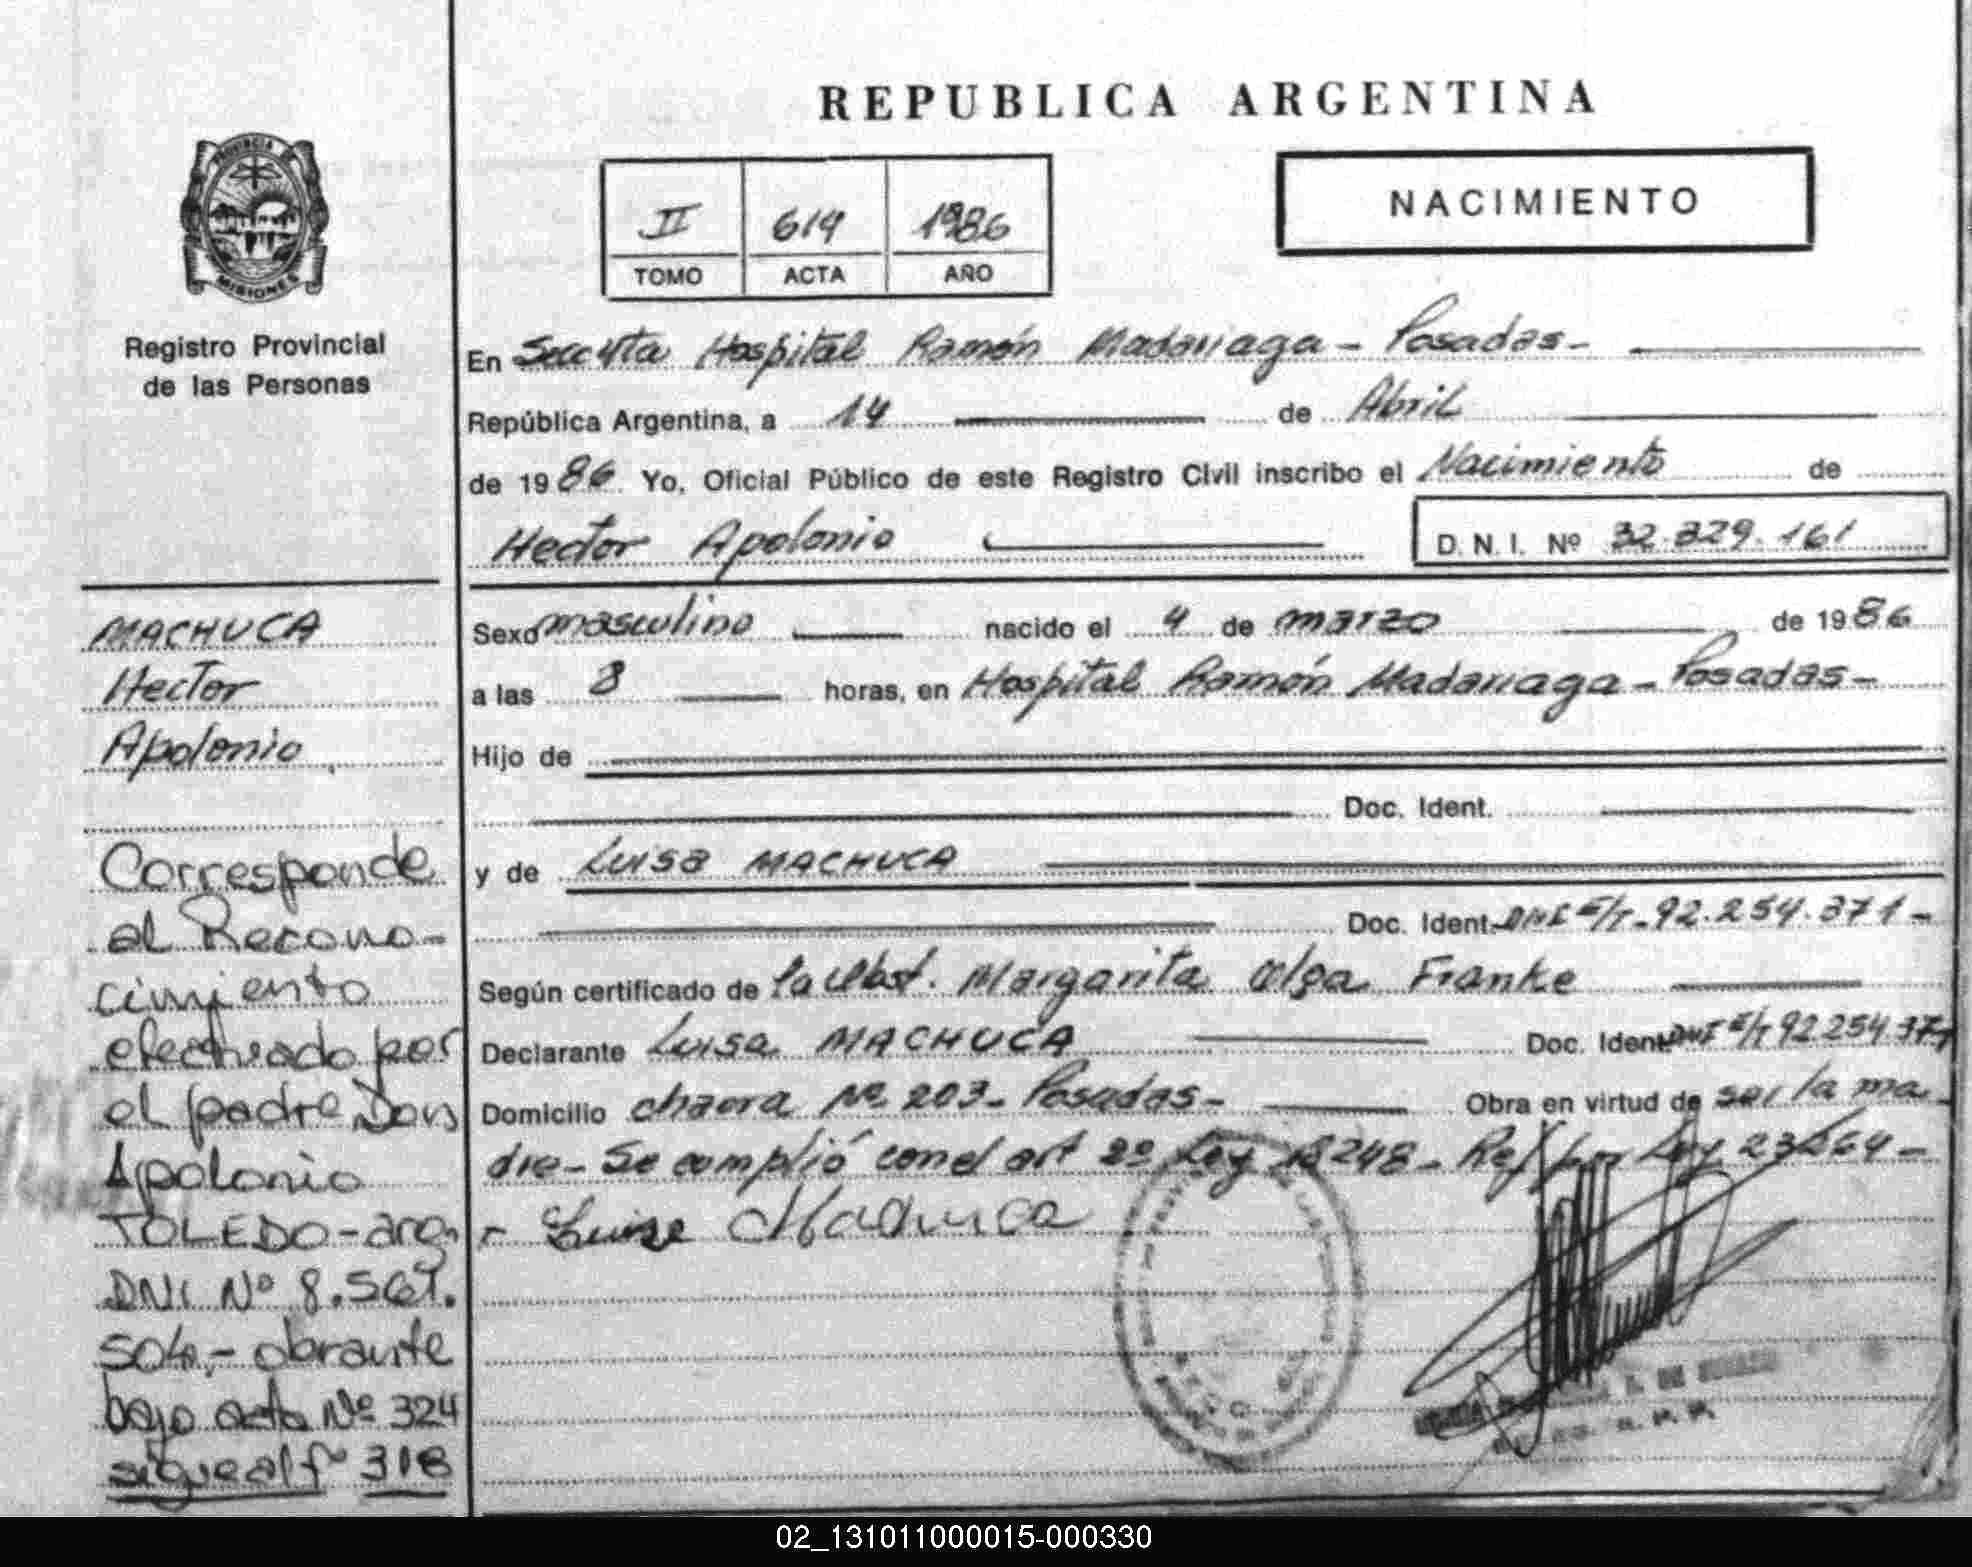 REPUBLICA ARGENTINA
PROVINCIA DE
MISIONES
Registro Provincial
de las Personas
II 614 1986
TOMO ACTA AÑO
NACIMIENTO
En Secc 4ta Hospital Ramón Madariaga - Posadas -
República Argentina, a 14 de Abril
de 1986 Yo, Oficial Público de este Registro Civil inscribo el Nacimiento de
Hector Apolonio D. N. I. Nº 32.329.161
Sexo masculino nacido el 4 de marzo de 1986
a las 8 horas, en Hospital Ramón Madariaga - Posadas -
Hijo de
Doc. Ident.
y de Luisa MACHUCA
Doc. Ident. DNI E/T - 92.254.371 -
Según certificado de la Obst. Margarita Olga Franke
Declarante Luisa MACHUCA Doc. Ident. DNI E/T 92.254.371
Domicilio chacra Nº 203 - Posadas - Obra en virtud de ser la ma
dre - Se cumplió con el art 2º Ley 18248 - Ref por Ley 23264 -
- Luisa Machuca
MACHUCA
Hector
Apolonio
Corresponde
al Recono-
cimiento
efectuado por
el padre Don
Apolonio
TOLEDO - arg.
DNI Nº 8.567.
504.- obrante
bajo acta Nº 324
sigue al fº 318
02_131011000015-000330